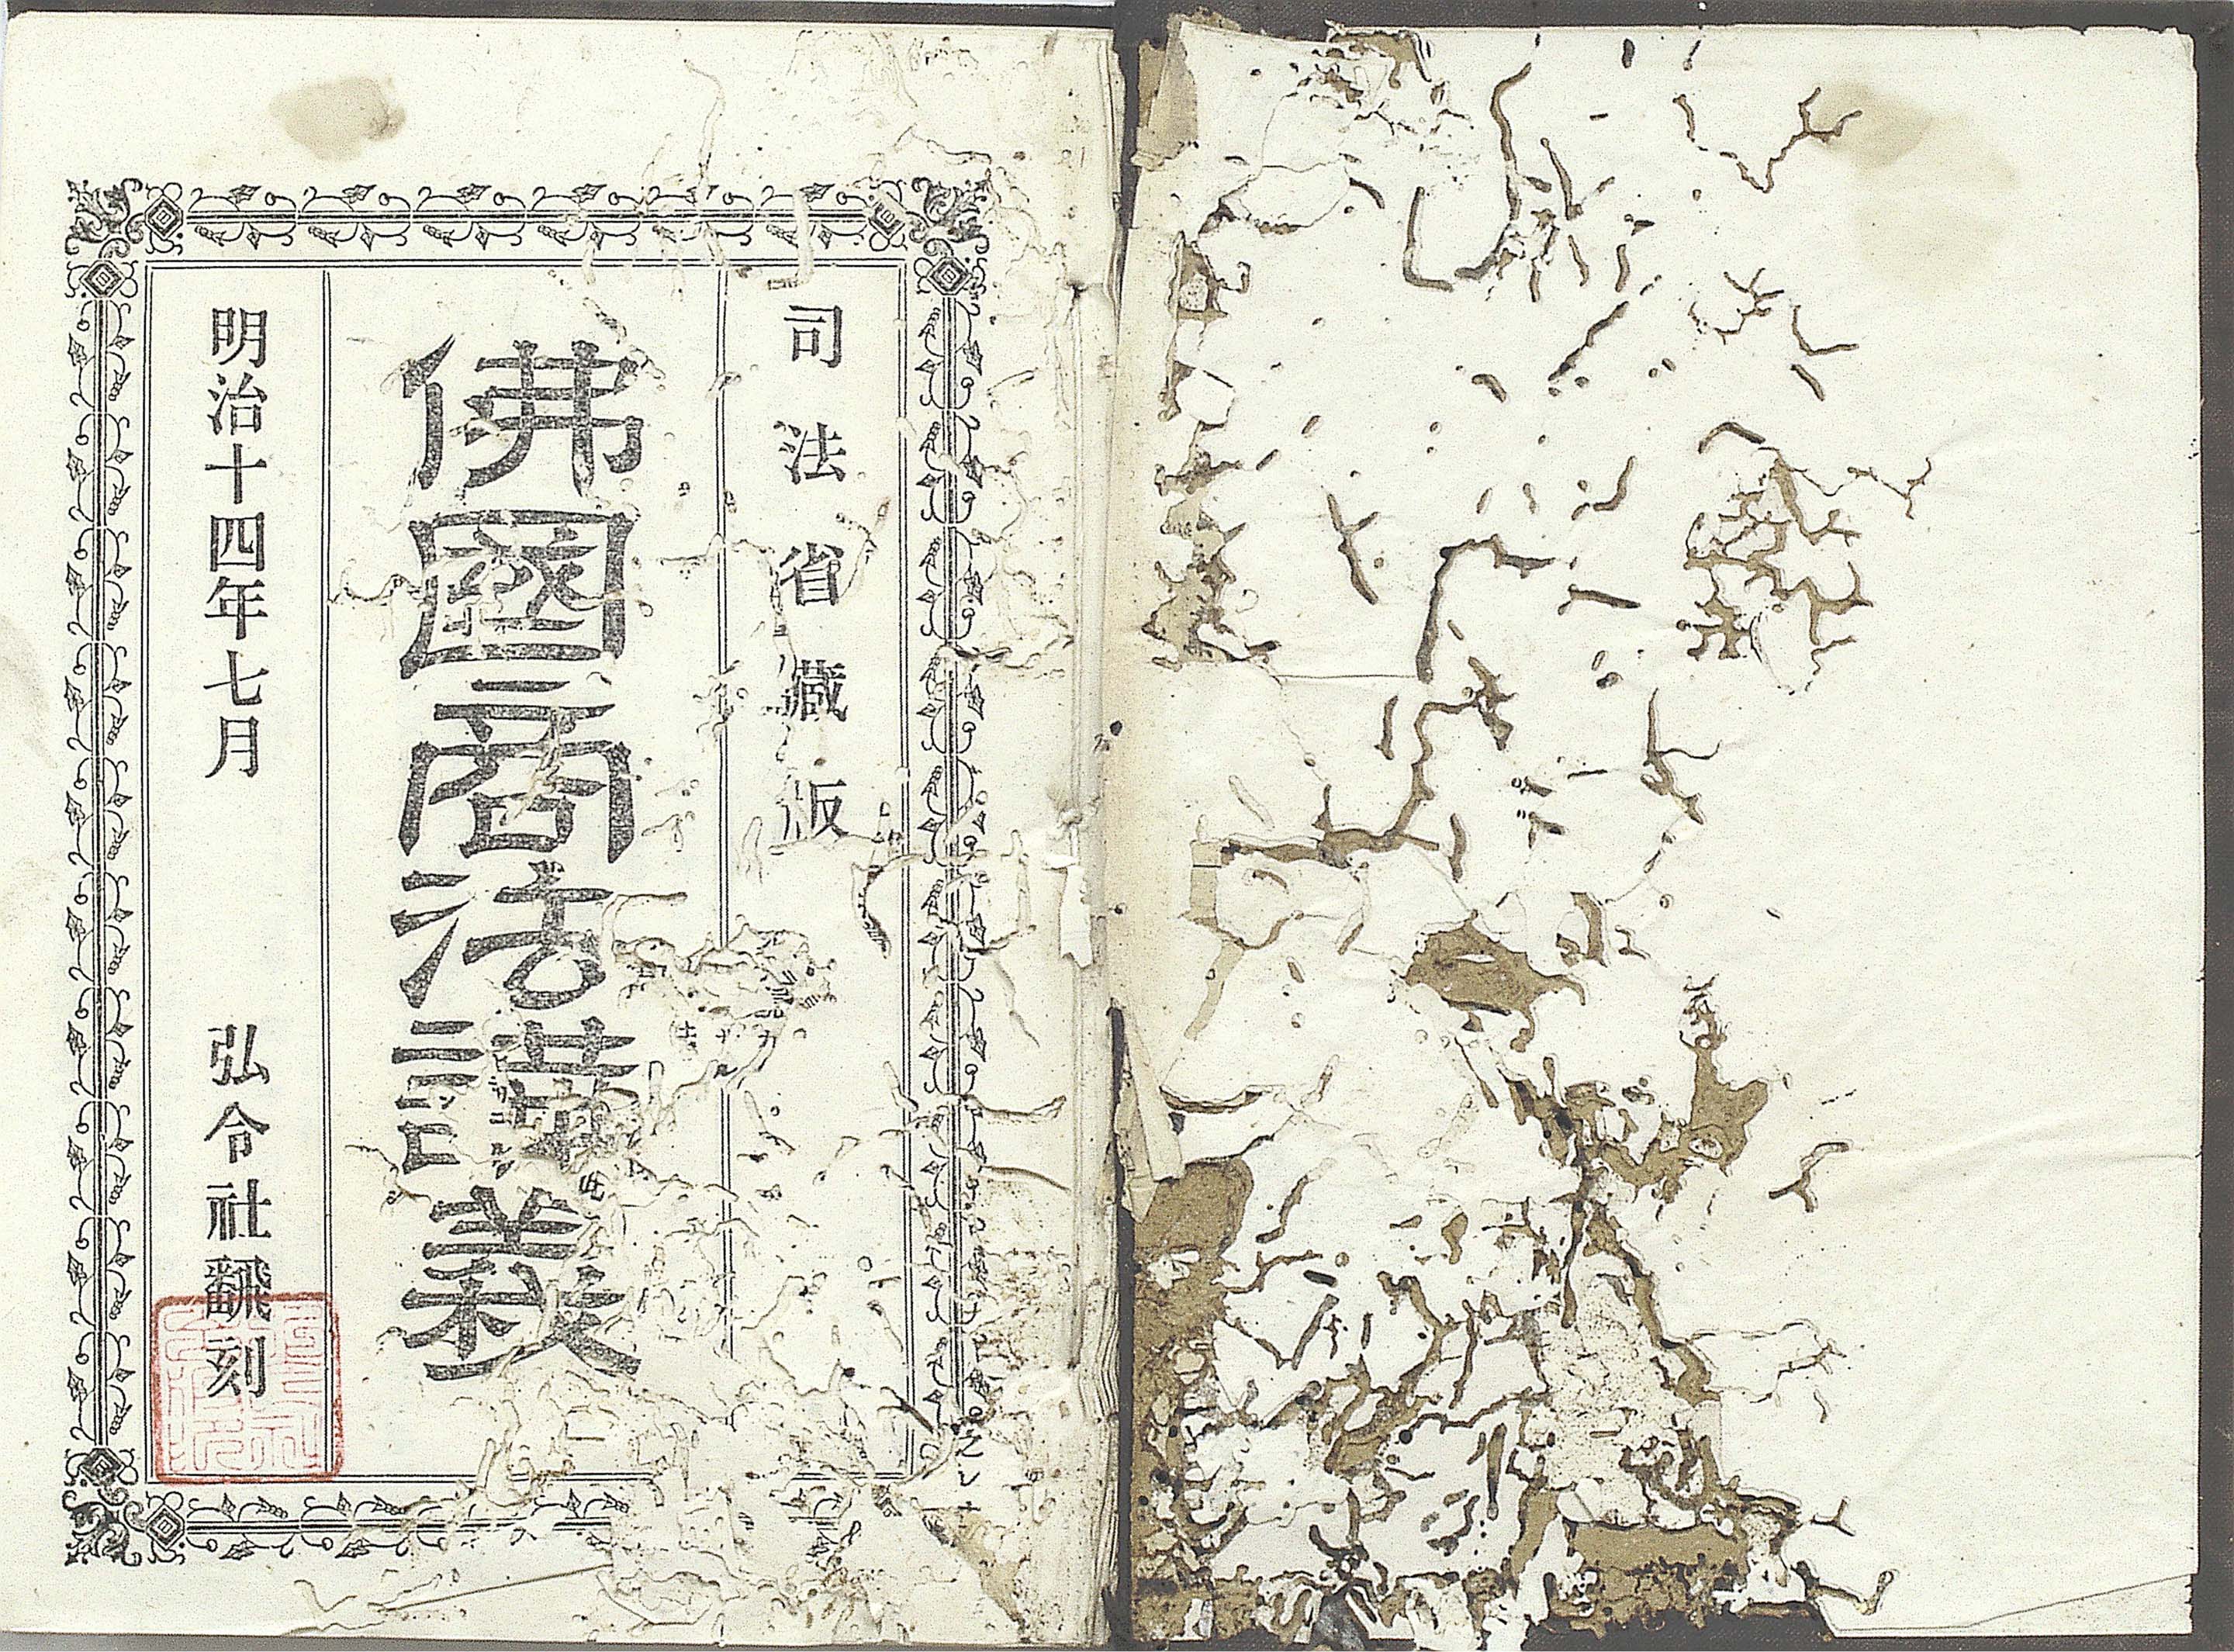 司法省藏版
佛國商法講義
明治十四年七月 弘令社飜刻